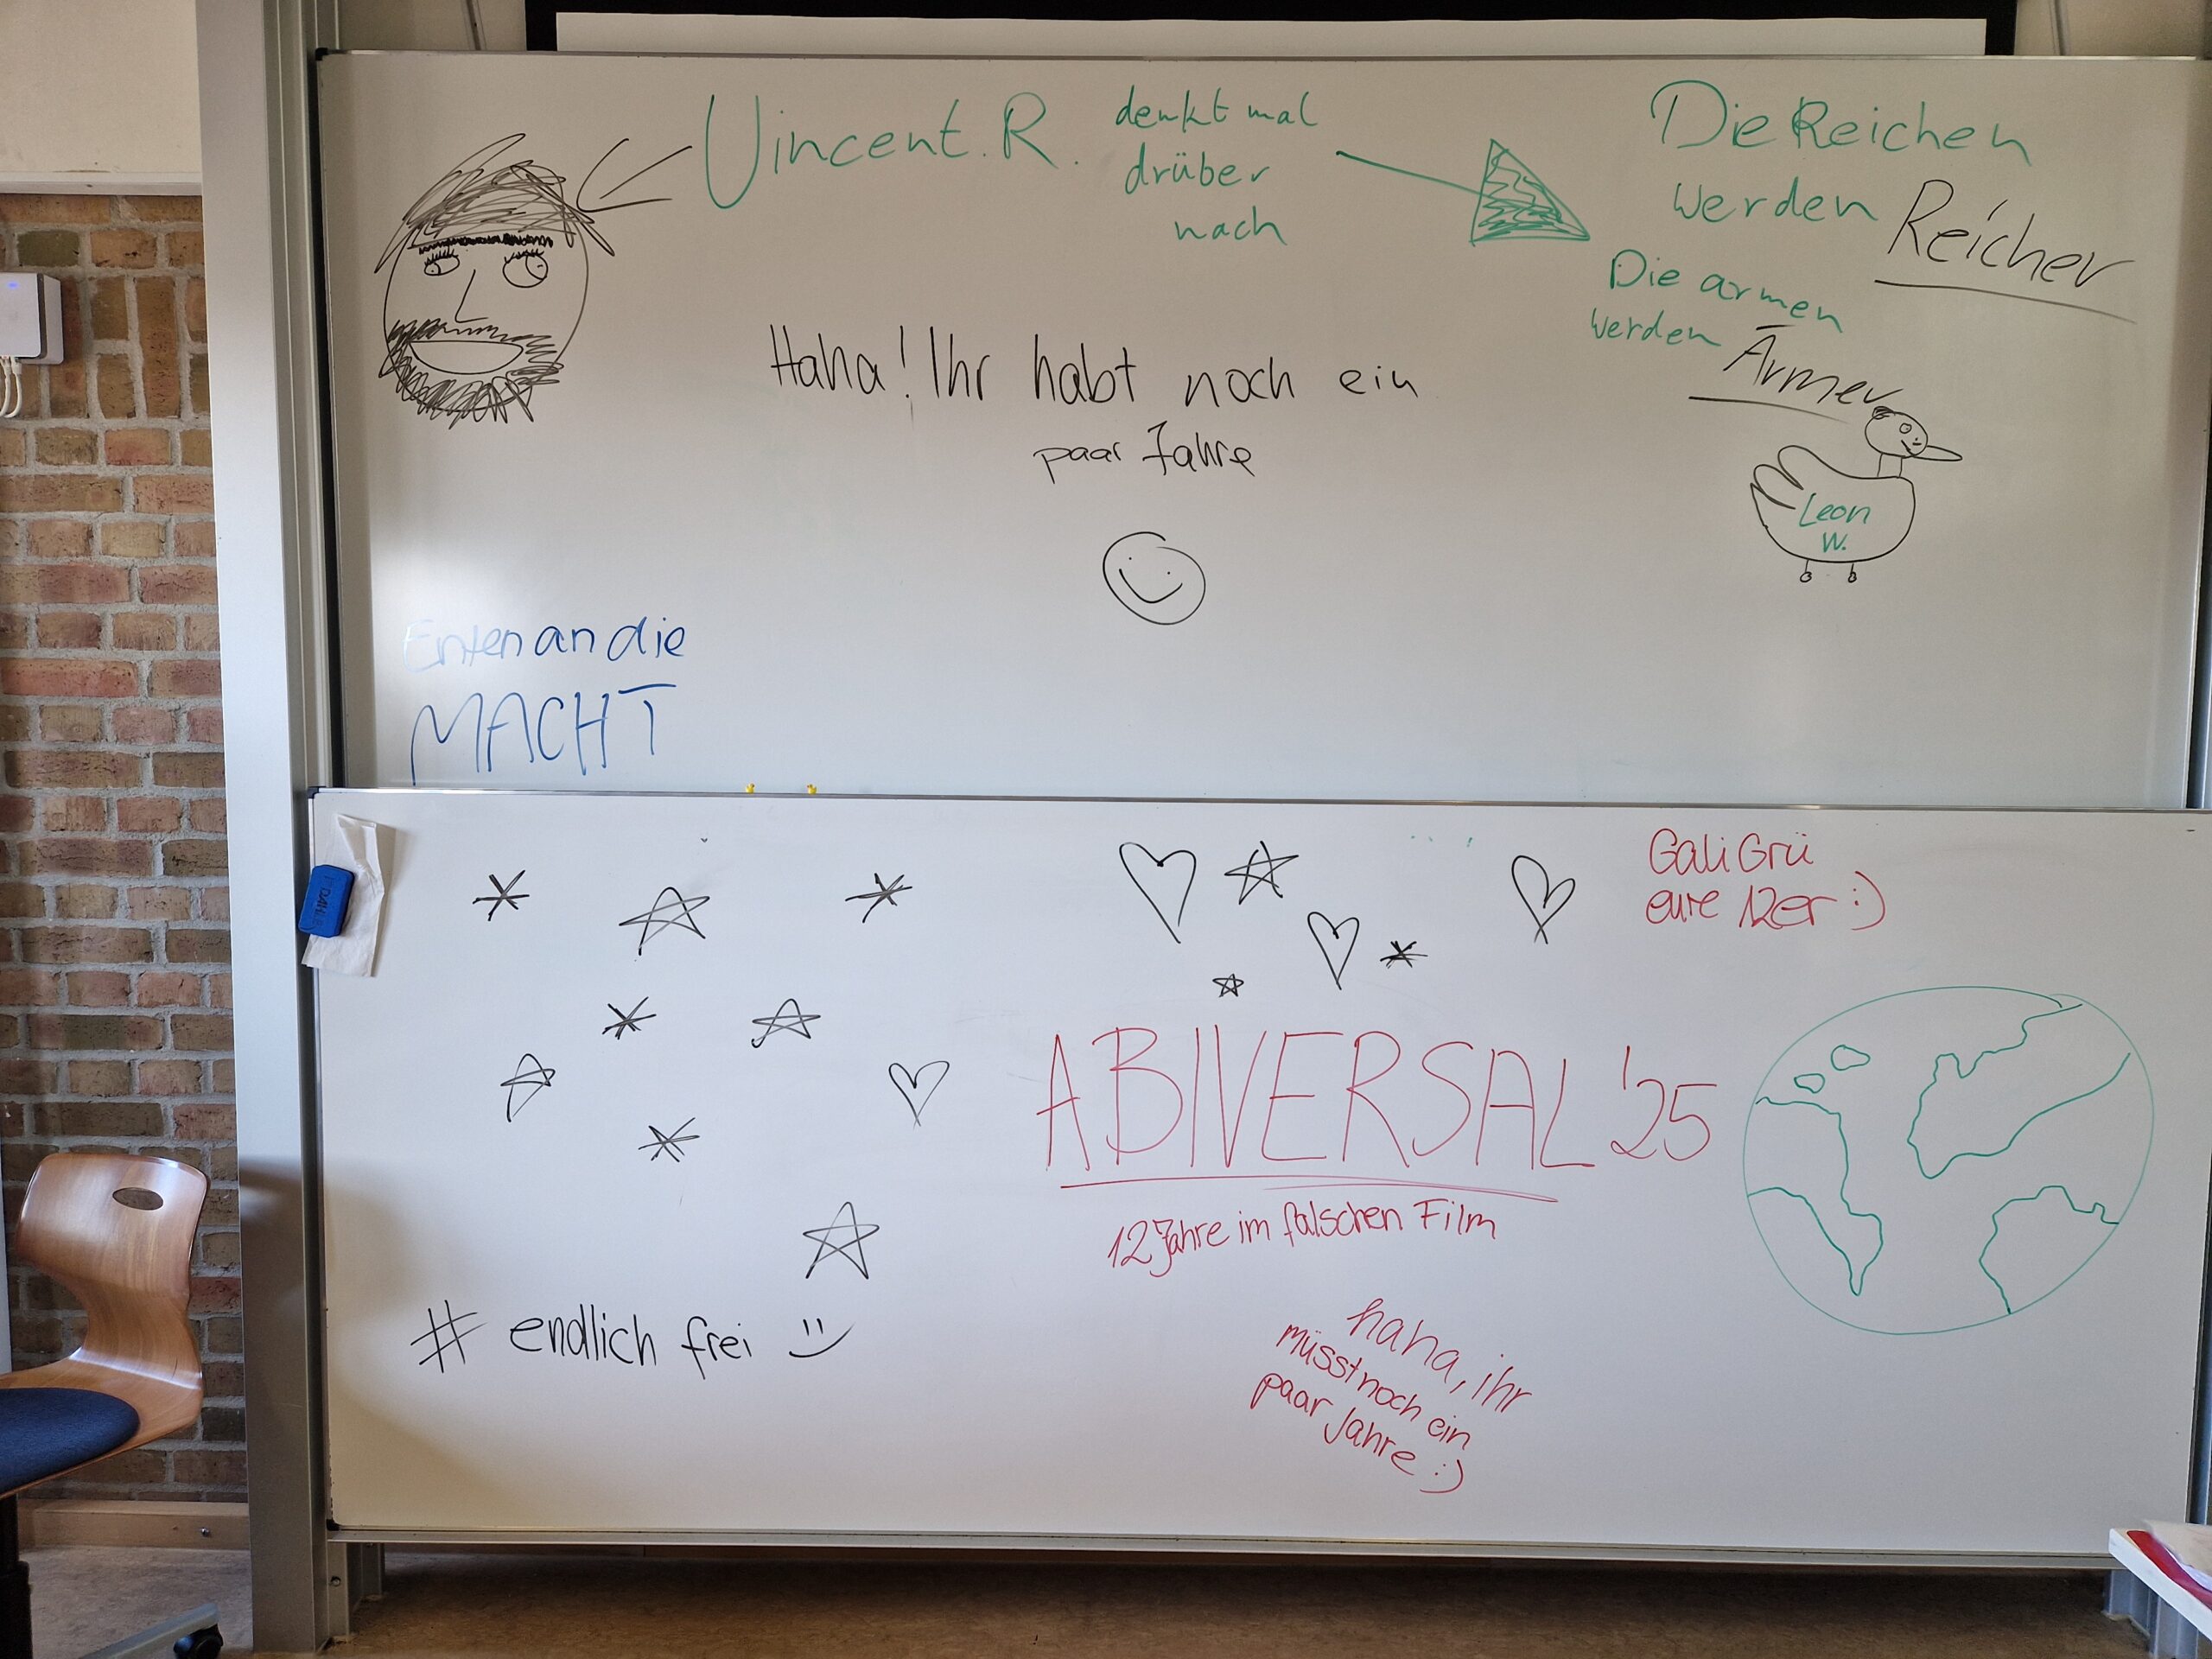 Vincent. R.
denkt mal
drüber
nach
Die Reichen
werden Reicher
Die armen
werden Ärmer
Haha! Ihr habt noch ein
paar Jahre
Leon
W.
Enten an die
MACHT
Gali Grü
eure 12er :)
ABIVERSAL '25
12 Jahre im falschen Film
# endlich frei
haha, ihr
müsst noch ein
paar Jahre :)